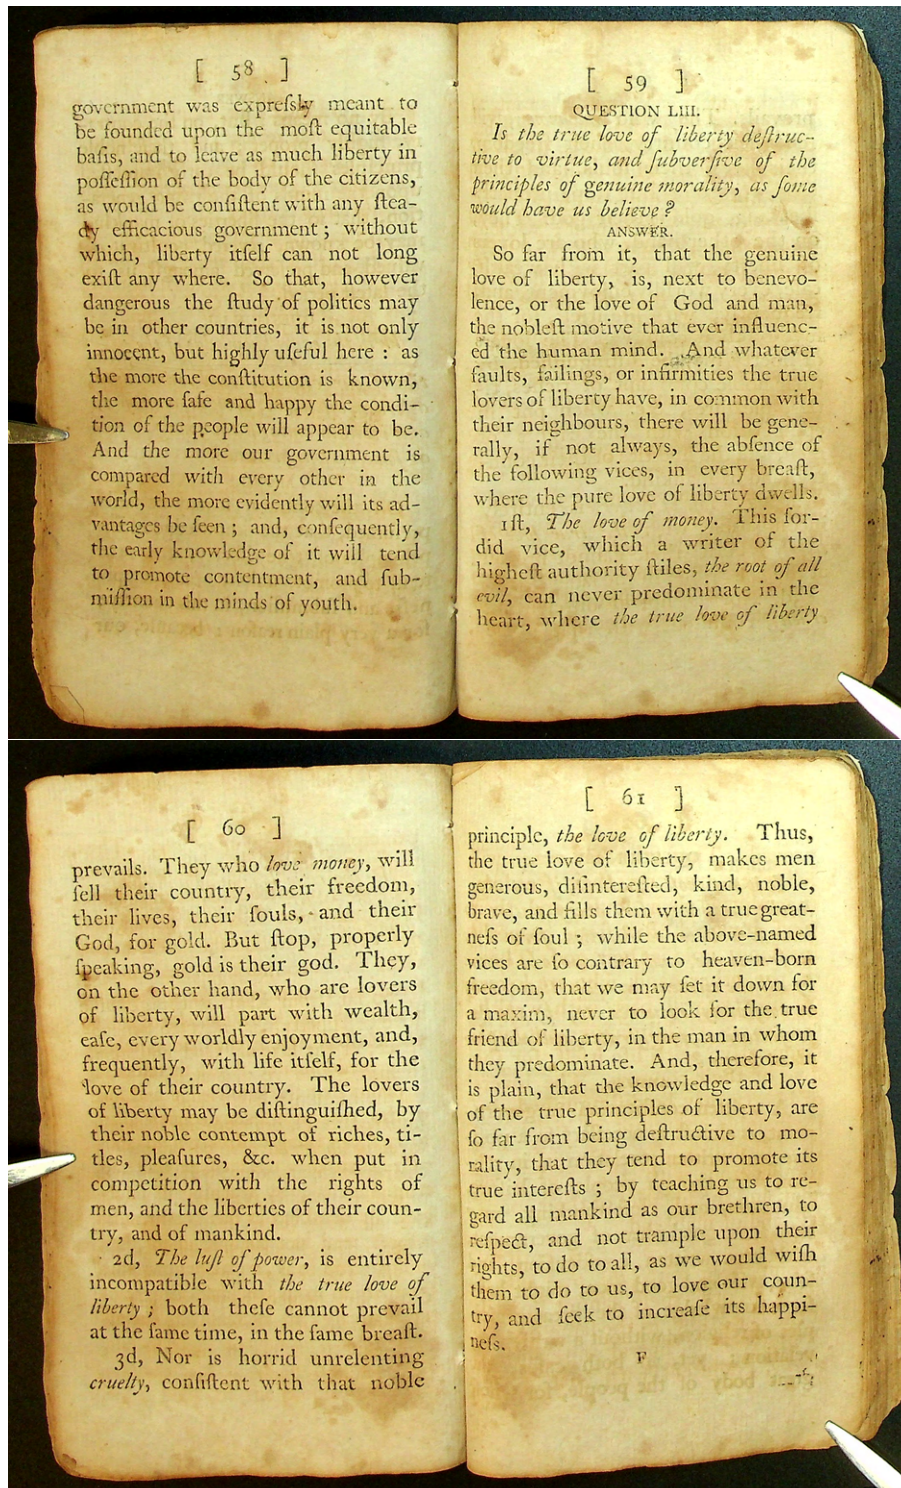 [ 58 ]
government was expreſsly meant to
be founded upon the moſt equitable
baſis, and to leave as much liberty in
poſſeſſion of the body of the citizens,
as would be conſiſtent with any ſtea-
dy efficacious government ; without
which, liberty itſelf can not long
exiſt any where. So that, however
dangerous the ſtudy of politics may
be in other countries, it is not only
innocent, but highly uſeful here : as
the more the conſtitution is known,
the more ſafe and happy the condi-
tion of the people will appear to be.
And the more our government is
compared with every other in the
world, the more evidently will its ad-
vantages be ſeen ; and, conſequently,
the early knowledge of it will tend
to promote contentment, and ſub-
miſſion in the minds of youth.
[ 59 ]
QUESTION LIII.
Is the true love of liberty deſtruc-
tive to virtue, and ſubverſive of the
principles of genuine morality, as ſome
would have us believe ?
ANSWER.
So far from it, that the genuine
love of liberty, is, next to benevo-
lence, or the love of God and man,
the nobleſt motive that ever influenc-
ed the human mind. And whatever
faults, failings, or infirmities the true
lovers of liberty have, in common with
their neighbours, there will be gene-
rally, if not always, the abſence of
the following vices, in every breaſt,
where the pure love of liberty dwells.
1ſt, The love of money. This ſor-
did vice, which a writer of the
higheſt authority ſtiles, the root of all
evil, can never predominate in the
heart, where the true love of liberty
[ 60 ]
prevails. They who love money, will
ſell their country, their freedom,
their lives, their ſouls, and their
God, for gold. But ſtop, properly
ſpeaking, gold is their god. They,
on the other hand, who are lovers
of liberty, will part with wealth,
eaſe, every worldly enjoyment, and,
frequently, with life itſelf, for the
love of their country. The lovers
of liberty may be diſtinguiſhed, by
their noble contempt of riches, ti-
tles, pleaſures, &c. when put in
competition with the rights of
men, and the liberties of their coun-
try, and of mankind.
2d, The luſt of power, is entirely
incompatible with the true love of
liberty ; both theſe cannot prevail
at the ſame time, in the ſame breaſt.
3d, Nor is horrid unrelenting
cruelty, conſiſtent with that noble
[ 61 ]
principle, the love of liberty. Thus,
the true love of liberty, makes men
generous, diſintereſted, kind, noble,
brave, and fills them with a true great-
neſs of ſoul ; while the above-named
vices are ſo contrary to heaven-born
freedom, that we may ſet it down for
a maxim, never to look for the true
friend of liberty, in the man in whom
they predominate. And, therefore, it
is plain, that the knowledge and love
of the true principles of liberty, are
ſo far from being deſtructive to mo-
rality, that they tend to promote its
true intereſts ; by teaching us to re-
gard all mankind as our brethren, to
reſpect, and not trample upon their
rights, to do to all, as we would wiſh
them to do to us, to love our coun-
try, and ſeek to increaſe its happi-
neſs.
F